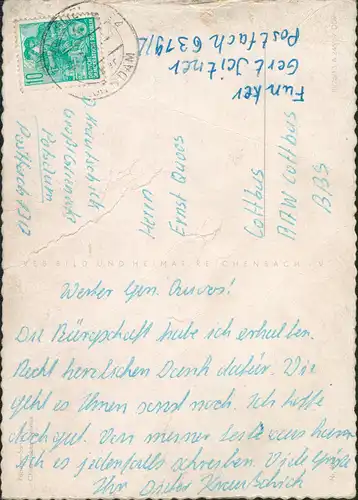 Funker
Gert Jeitner
Postfach 6319/2
D. Krautschich
Potsdam
Postfach 1310
Herrn
Ernst Quoos
Cottbus
RAW Cottbus
BBS
VEB BILD UND HEIMAT REICHENBACH I. V.
Werter Gen. Quoos!
Die Bürgschaft habe ich erhalten.
Recht herzlichen Dank dafür. Wie
geht es Ihnen sonst noch. Ich hoffe
doch gut. Von meiner Seite aus kann
ich es jedenfalls schreiben. Viele Grüße
Ihr Dieter Krautschich
10